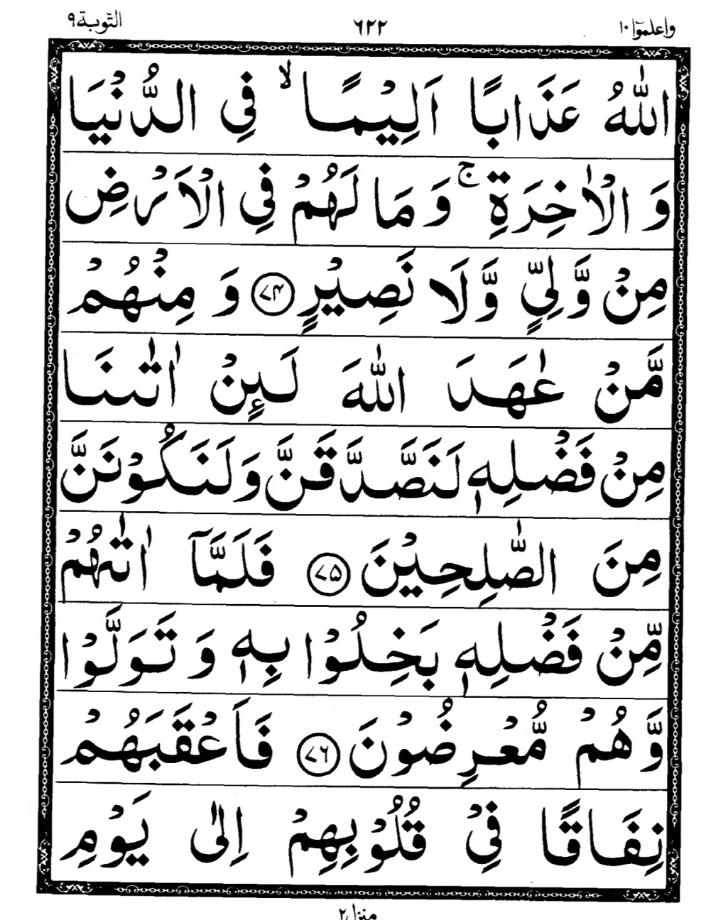 واعلموٓا ١٠ ٦٢٢ التوبة ٩
اللّٰهُ عَذَابًا اَلِيْمًا ۙ فِي الدُّنْيَا
وَ الْاٰخِرَةِ ۚ وَ مَا لَهُمْ فِي الْاَرْضِ
مِنْ وَّلِيٍّ وَّلَا نَصِيْرٍ ﴿۷۴﴾ وَ مِنْهُمْ
مَّنْ عٰهَدَ اللّٰهَ لَىِٕنْ اٰتٰىنَا
مِنْ فَضْلِهٖ لَنَصَّدَّقَنَّ وَلَنَكُوْنَنَّ
مِنَ الصّٰلِحِيْنَ ﴿۷۵﴾ فَلَمَّاۤ اٰتٰىهُمْ
مِّنْ فَضْلِهٖ بَخِلُوْا بِهٖ وَ تَوَلَّوْا
وَّهُمْ مُّعْرِضُوْنَ ﴿۷۶﴾ فَاَعْقَبَهُمْ
نِفَاقًا فِيْ قُلُوْبِهِمْ اِلٰى يَوْمِ
منزل ٢